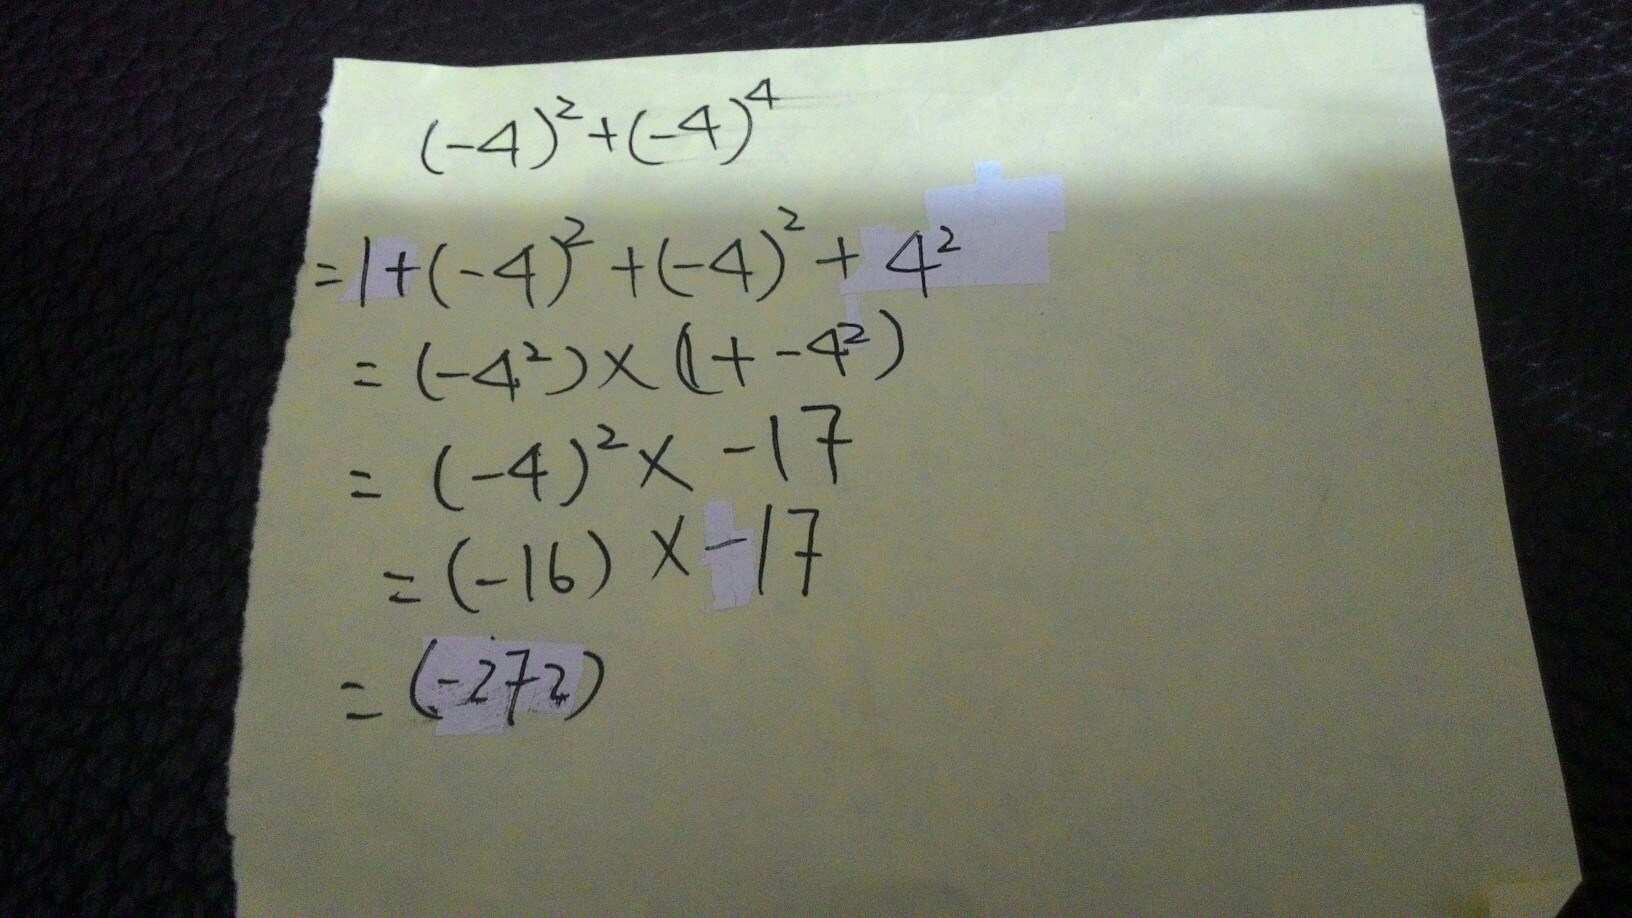 (-4)²+(-4)⁴
=1+(-4)²+(-4)²+4²
=(-4²)×(1+-4²)
=(-4)²×-17
=(-16)×-17
=(-272)